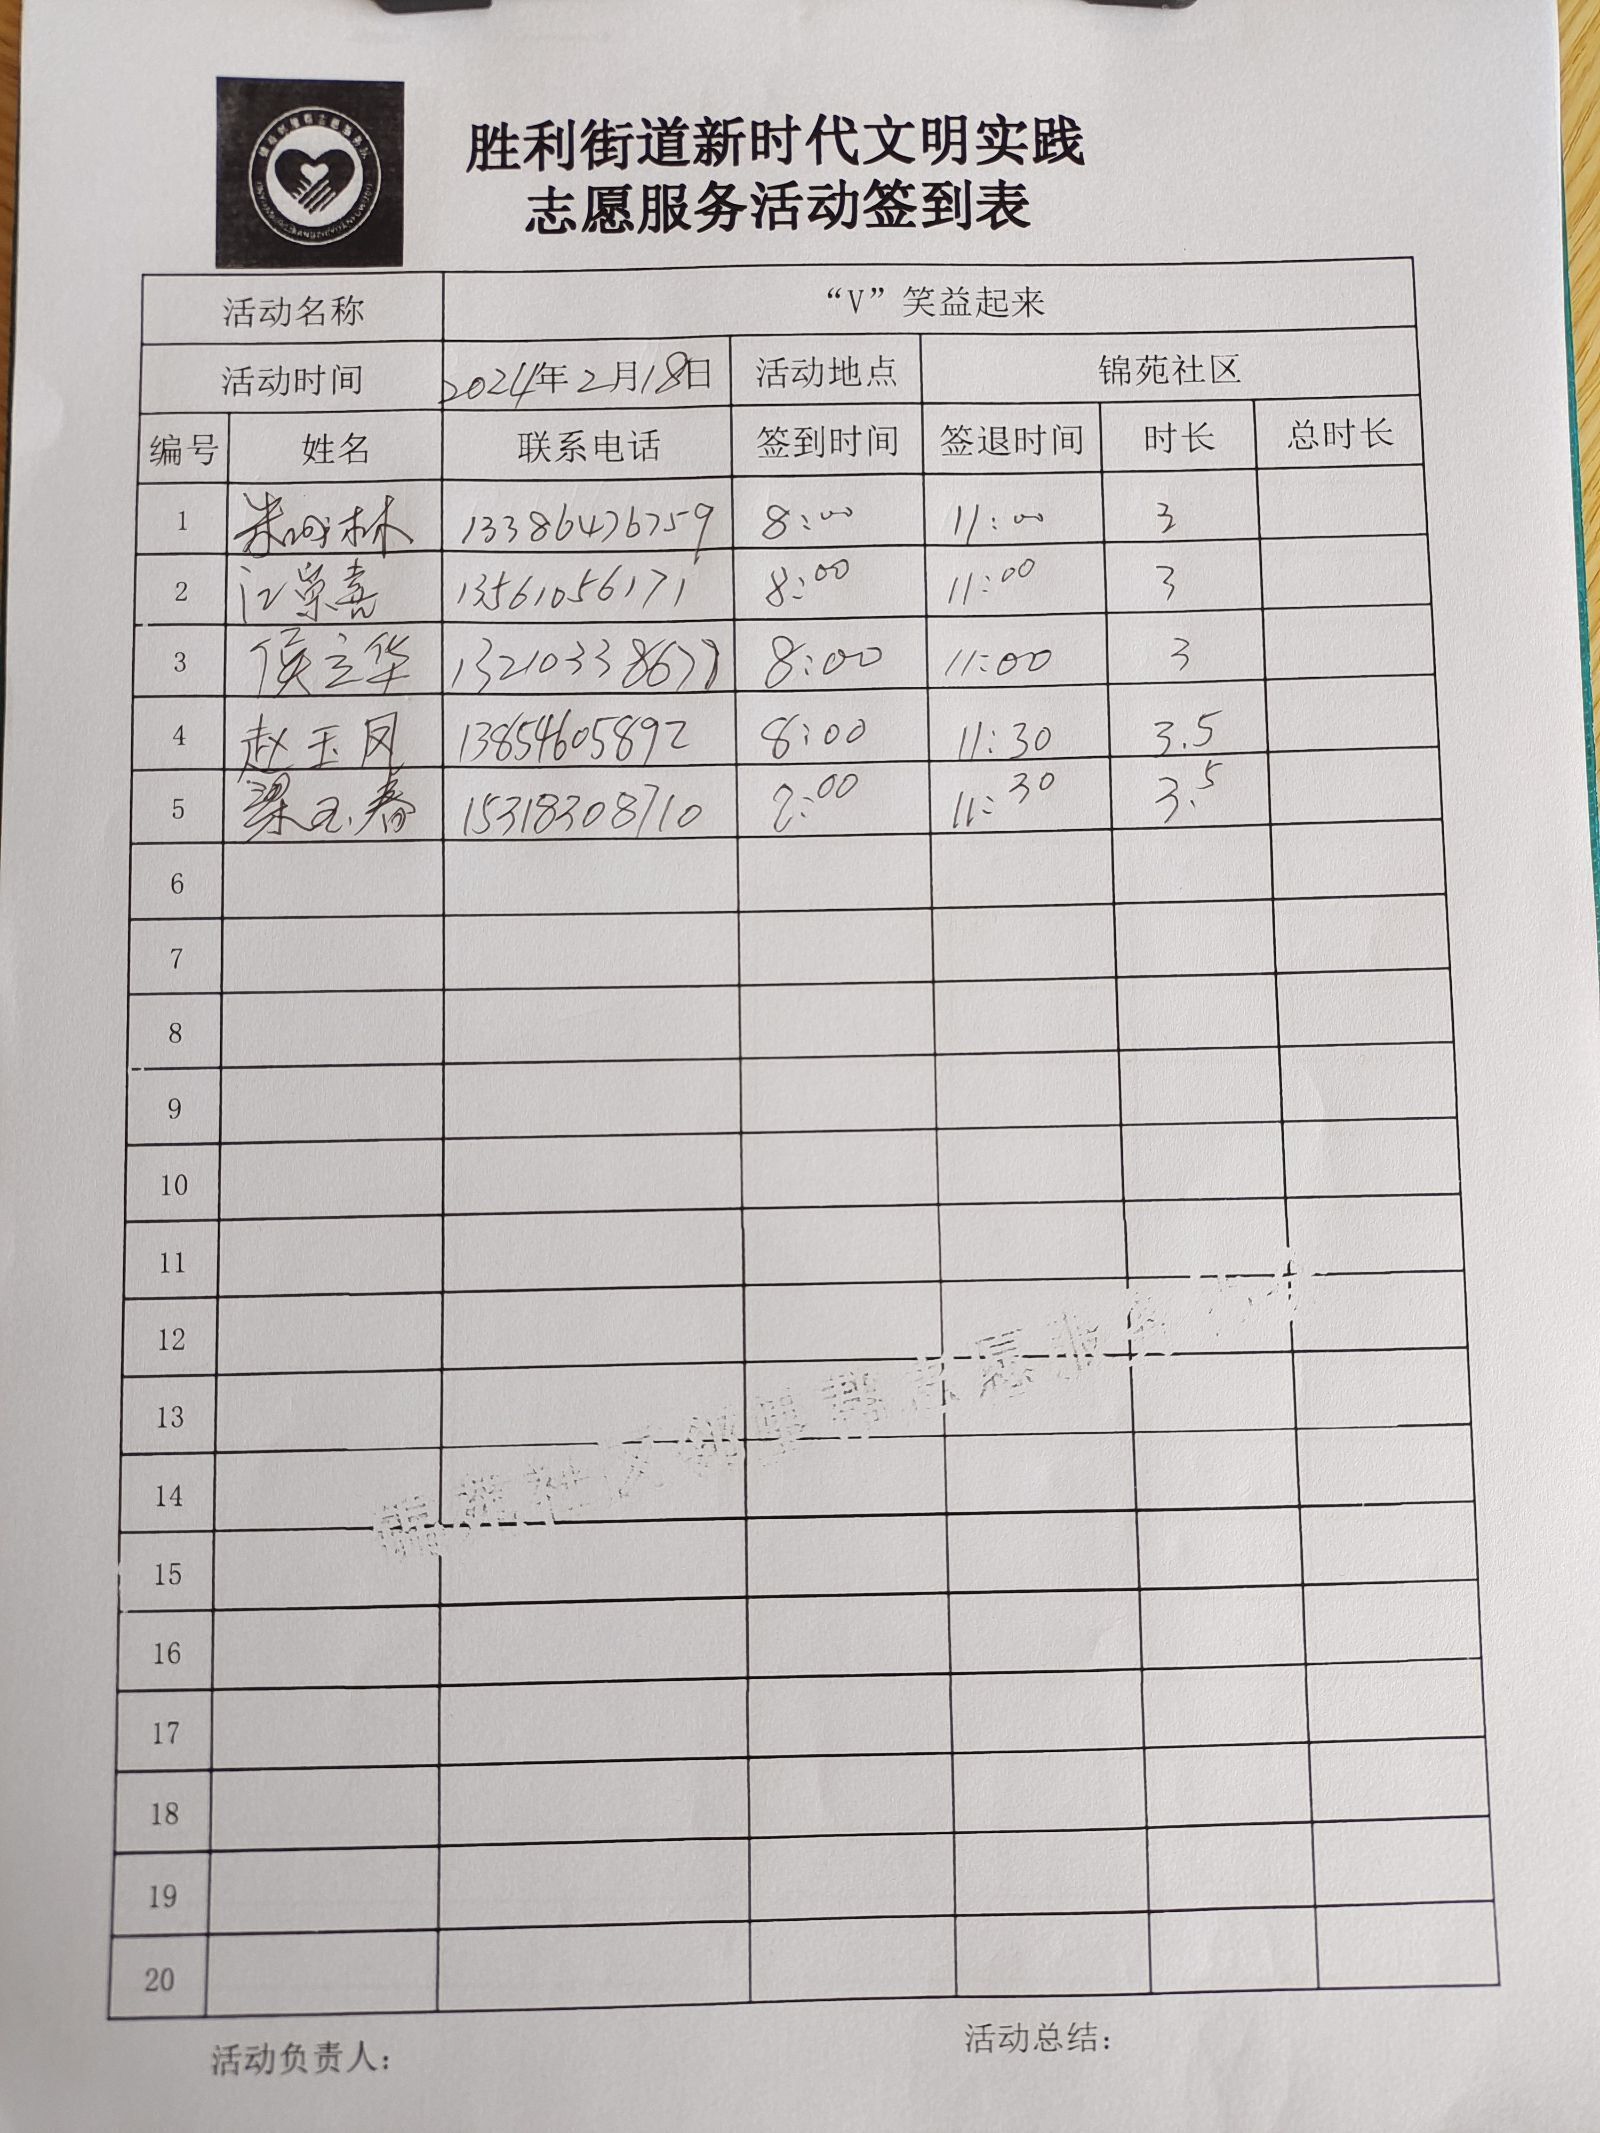 胜利街道新时代文明实践
志愿服务活动签到表
活动名称 “V”笑益起来
活动时间 2024年2月18日 活动地点 锦苑社区
编号 姓名 联系电话 签到时间 签退时间 时长 总时长
1 林 13386476759 8:00 11:00 3
2 江荣喜 13561056171 8:00 11:00 3
3 侯立华 13210338677 8:00 11:00 3
4 赵玉凤 13854605892 8:00 11:30 3.5
5 梁玉春 15318308710 8:00 11:30 3.5
6
7
8
9
10
11
12
13
14
15
16
17
18
19
20
活动负责人: 活动总结: